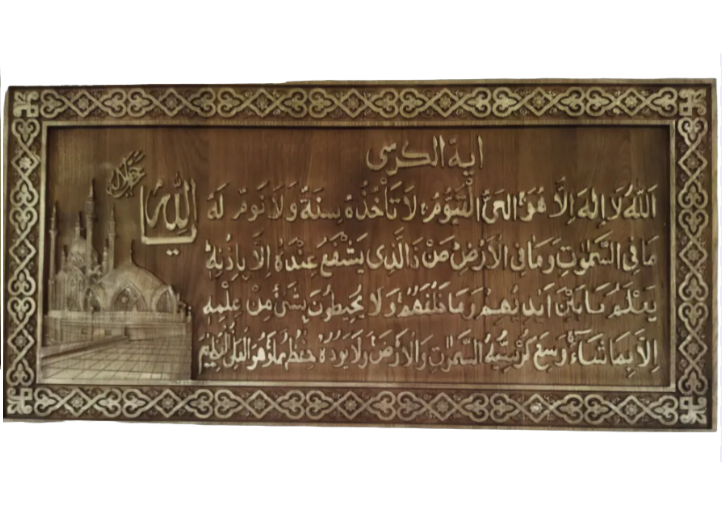 اية الكرسى
اَللّٰهُ لَا اِلٰهَ اِلَّا هُوَ الْحَىُّ الْقَيُّوْمُ لَا تَأْخُذُهٗ سِنَةٌ وَّلَا نَوْمٌ لَهٗ
مَا فِى السَّمٰوٰتِ وَمَا فِى الْاَرْضِ مَنْ ذَا الَّذِى يَشْفَعُ عِنْدَهٗ اِلَّا بِاِذْنِهٖ
يَعْلَمُ مَا بَيْنَ اَيْدِيْهِمْ وَمَا خَلْفَهُمْ وَلَا يُحِيْطُوْنَ بِشَىْءٍ مِّنْ عِلْمِهٖ
اِلَّا بِمَا شَاءَ وَسِعَ كُرْسِيُّهُ السَّمٰوٰتِ وَالْاَرْضَ وَلَا يَؤُدُهٗ حِفْظُهُمَا وَهُوَ الْعَلِىُّ الْعَظِيْمُ
يا الله
جل جلاله